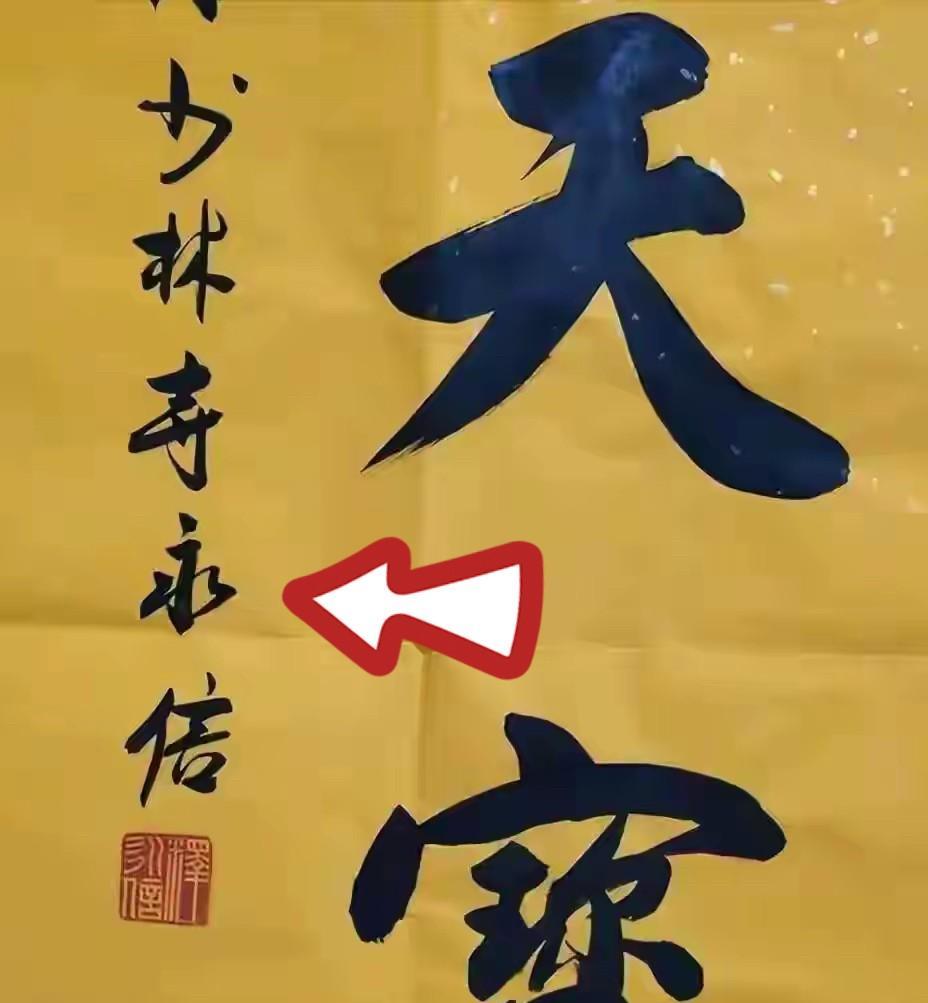 天寳
少林寺永信
釋永信